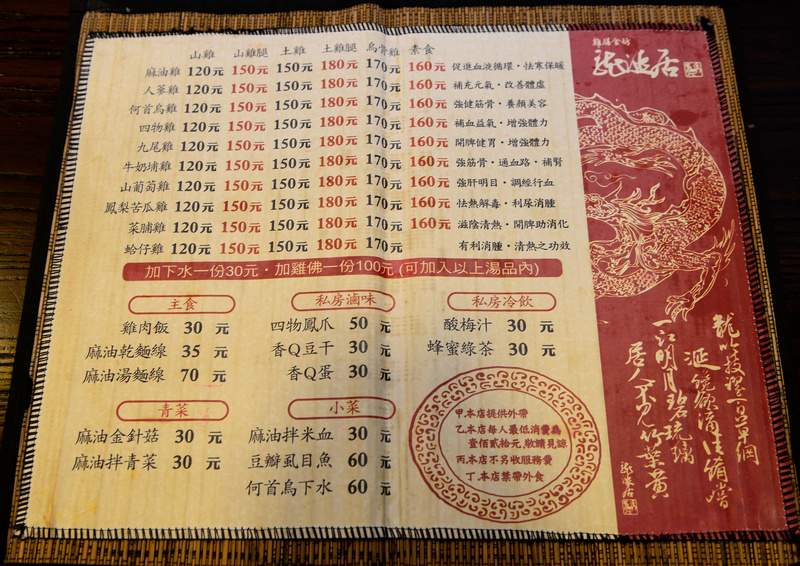 山雞 山雞腿 土雞 土雞腿 烏骨雞 素食
麻油雞 120元 150元 150元 180元 170元 160元 促進血液循環・怯寒保暖
人蔘雞 120元 150元 150元 180元 170元 160元 補充元氣・改善體虛
何首烏雞 120元 150元 150元 180元 170元 160元 強健筋骨・養顏美容
四物雞 120元 150元 150元 180元 170元 160元 補血益氣・增強體力
九尾雞 120元 150元 150元 180元 170元 160元 開脾健胃・增強體力
牛奶埔雞 120元 150元 150元 180元 170元 160元 強筋骨・通血路・補腎
山葡萄雞 120元 150元 150元 180元 170元 160元 強肝明目・調經行血
鳳梨苦瓜雞 120元 150元 150元 180元 170元 160元 怯熱解毒・利尿消腫
菜脯雞 120元 150元 150元 180元 170元 160元 滋陰清熱・開脾助消化
蛤仔雞 120元 150元 150元 180元 170元 有利消腫・清熱之功效
加下水一份30元・加雞佛一份100元 (可加入以上湯品內)
主食
雞肉飯 30 元
麻油乾麵線 35 元
麻油湯麵線 70 元
青菜
麻油金針菇 30 元
麻油拌青菜 30 元
私房滷味
四物鳳爪 50 元
香Q豆干 30 元
香Q蛋 30 元
小菜
麻油拌米血 30 元
豆瓣虱目魚 60 元
何首烏下水 60 元
私房冷飲
酸梅汁 30 元
蜂蜜綠茶 30 元
甲.本店提供外帶
乙.本店每人最低消費為
壹佰貳拾元,敬請見諒
丙.本店不另收服務費
丁.本店禁帶外食
雞膳食坊
龍涎居